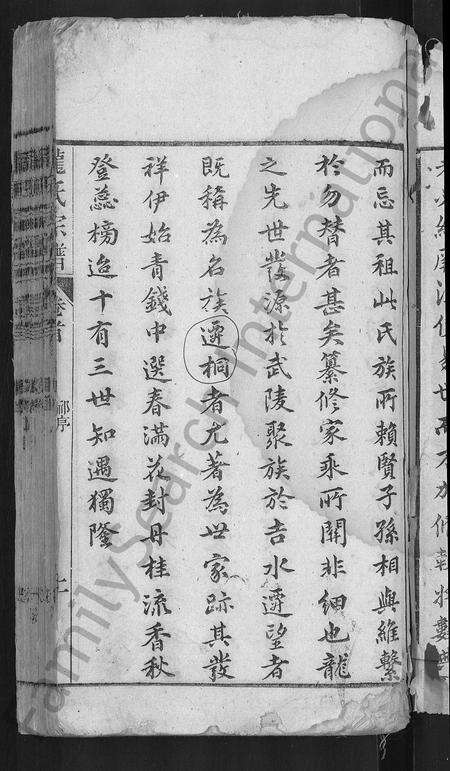 而忘其祖此氏族所賴賢子孫相與維繫
於勿替者甚矣纂修家乘所關非細也龍
之先世發源於武陵聚族於吉水遷望者
既稱為名族遷桐者尤著為世家跡其發
祥伊始青錢中選春滿花封丹桂流香秋
登蕊榜迨十有三世知遇獨隆
龍氏宗譜
卷首
FamilySearch International